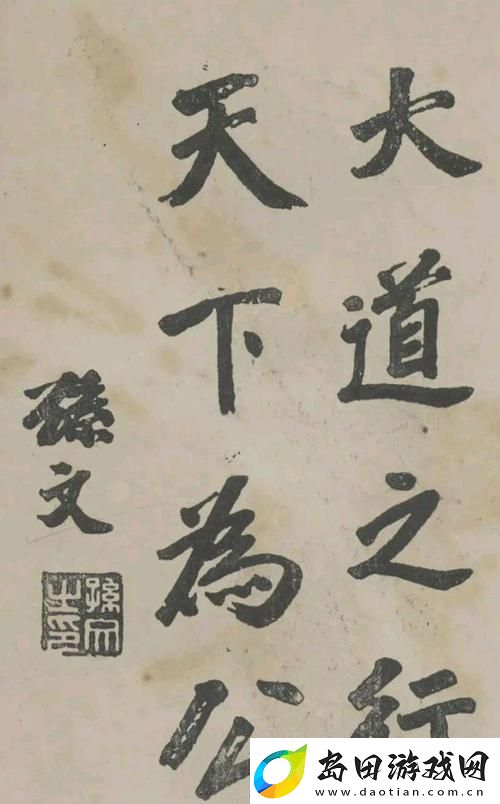 大道之行
天下為公
孫文
孫文之印
岛田游戏网
www.daotian.com.cn